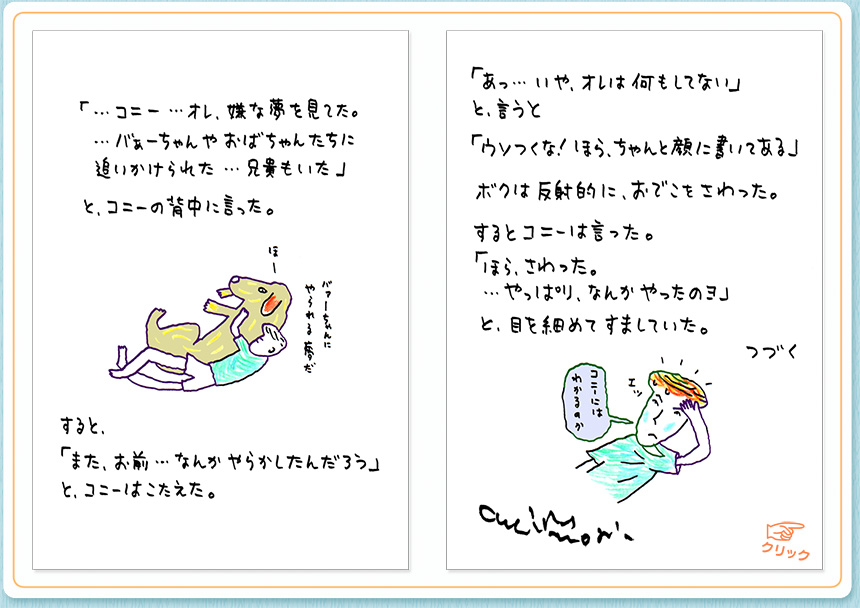 「…コニー…オレ、嫌な夢を見てた。
…バぁーちゃんやおばちゃんたちに
追いかけられた…兄貴もいた」
と、コニーの背中に言った。
ほー
バァーちゃんに
やられる夢だ
すると、
「また、お前…なんかやらかしたんだろう」
と、コニーはこたえた。
「あっ…いや、オレは何もしてない」
と、言うと
「ウソつくな!ほら、ちゃんと顔に書いてある」
ボクは反射的に、おでこをさわった。
するとコニーは言った。
「ほら、さわった。
…やっぱり、なんかやったのヨ」
と、目を細めてすましていた。
つづく
コニーには
わかるのか
エッ
クリック